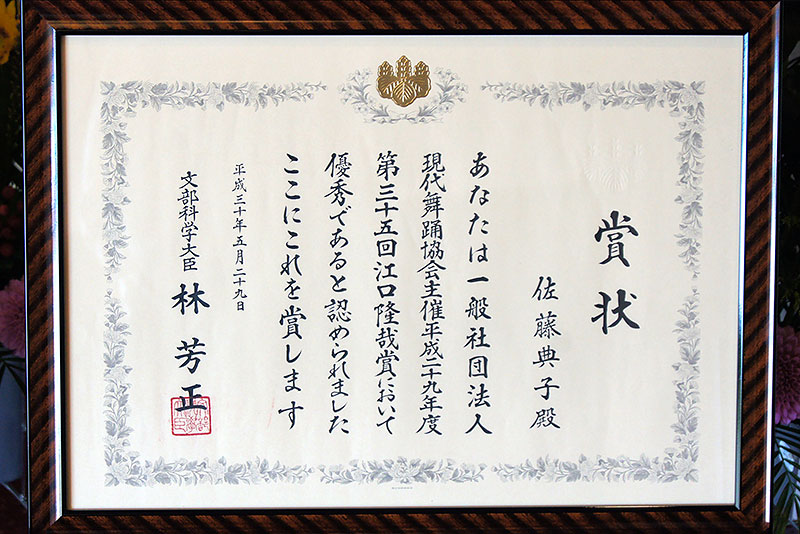 賞状
佐藤典子殿
あなたは一般社団法人
現代舞踊協会主催平成二九年度
第三十五回江口隆哉賞において
優秀であると認められました
ここにこれを賞します
平成三十年五月二十九日
文部科学大臣 林芳正